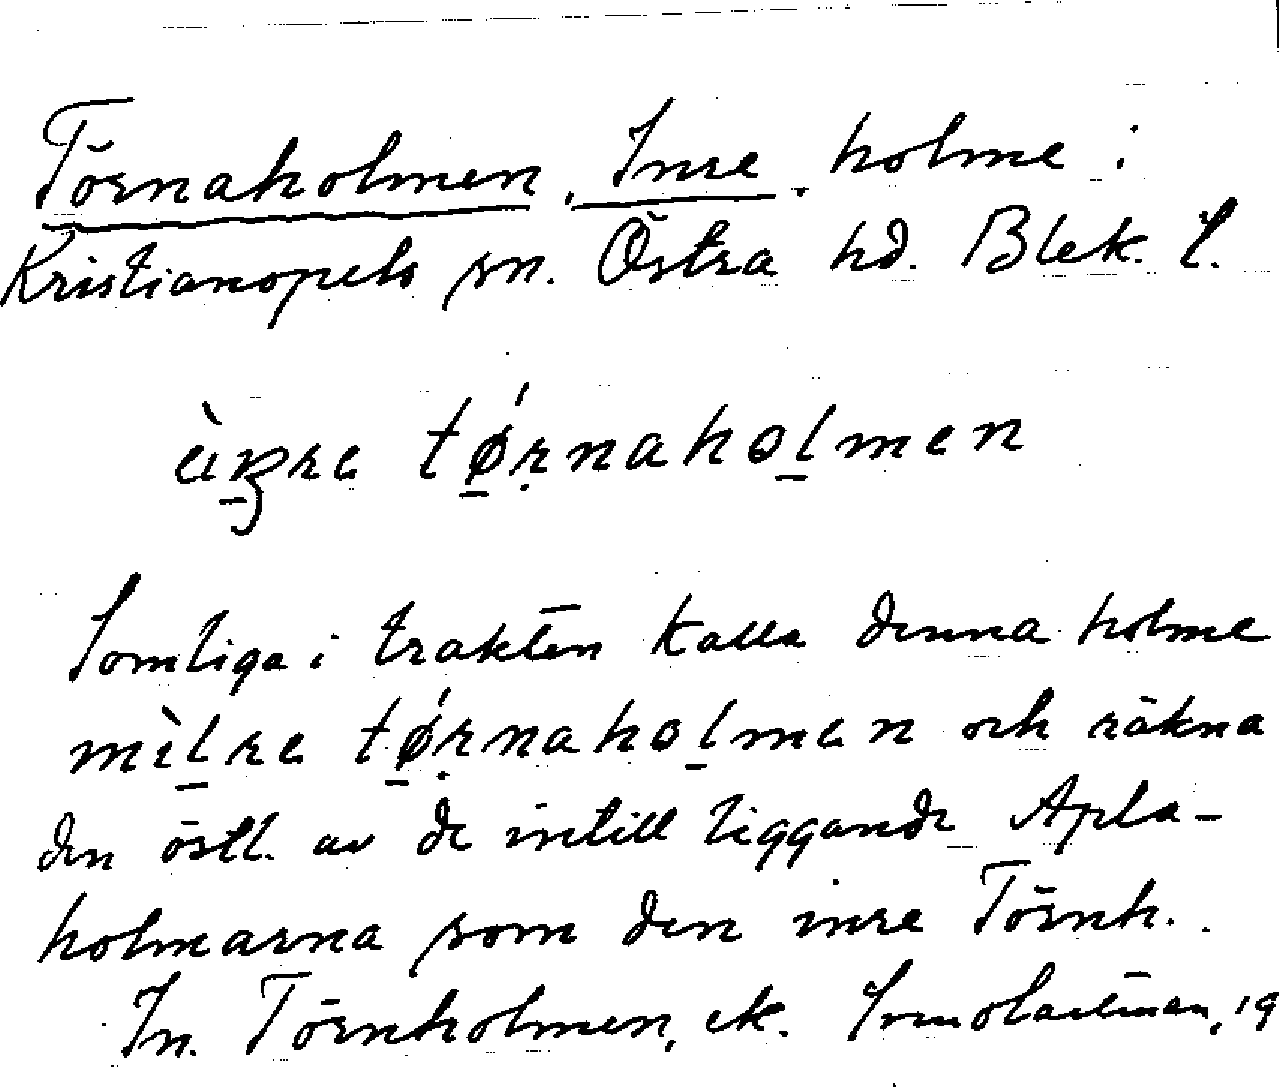 Törnaholmen, Inre. holme i
Kristianopels sn. Östra hd. Blek. l.
törnaholmen
Somliga i trakten kalla denna holme
mìlre tǿrnaholmen och räkna
den östl. av de intill liggande Apla-
holmarna som den inre Törnh.
In. Törnholmen, ek.